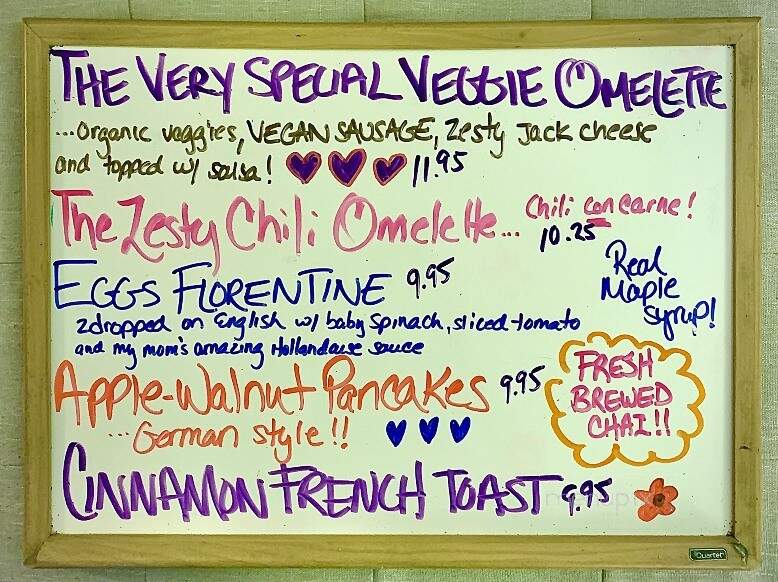 THE VERY SPECIAL VEGGIE OMELETTE
...Organic vaggies, VEGAN SAUSAGE, Zesty Jack cheese
and topped w/ salsa! 11.95
The Zesty Chili Omelette... Chili con carne!
10.25
EGGS FLORENTINE 9.95
Real
Maple
Syrup!
2 dropped on English w/ baby spinach, sliced tomato
and my mom's amazing Hollandaise sauce
Apple-Walnut Pancakes 9.95
...German style!!
FRESH
BREWED
CHAI!!
CINNAMON FRENCH TOAST 9.95
Quartet